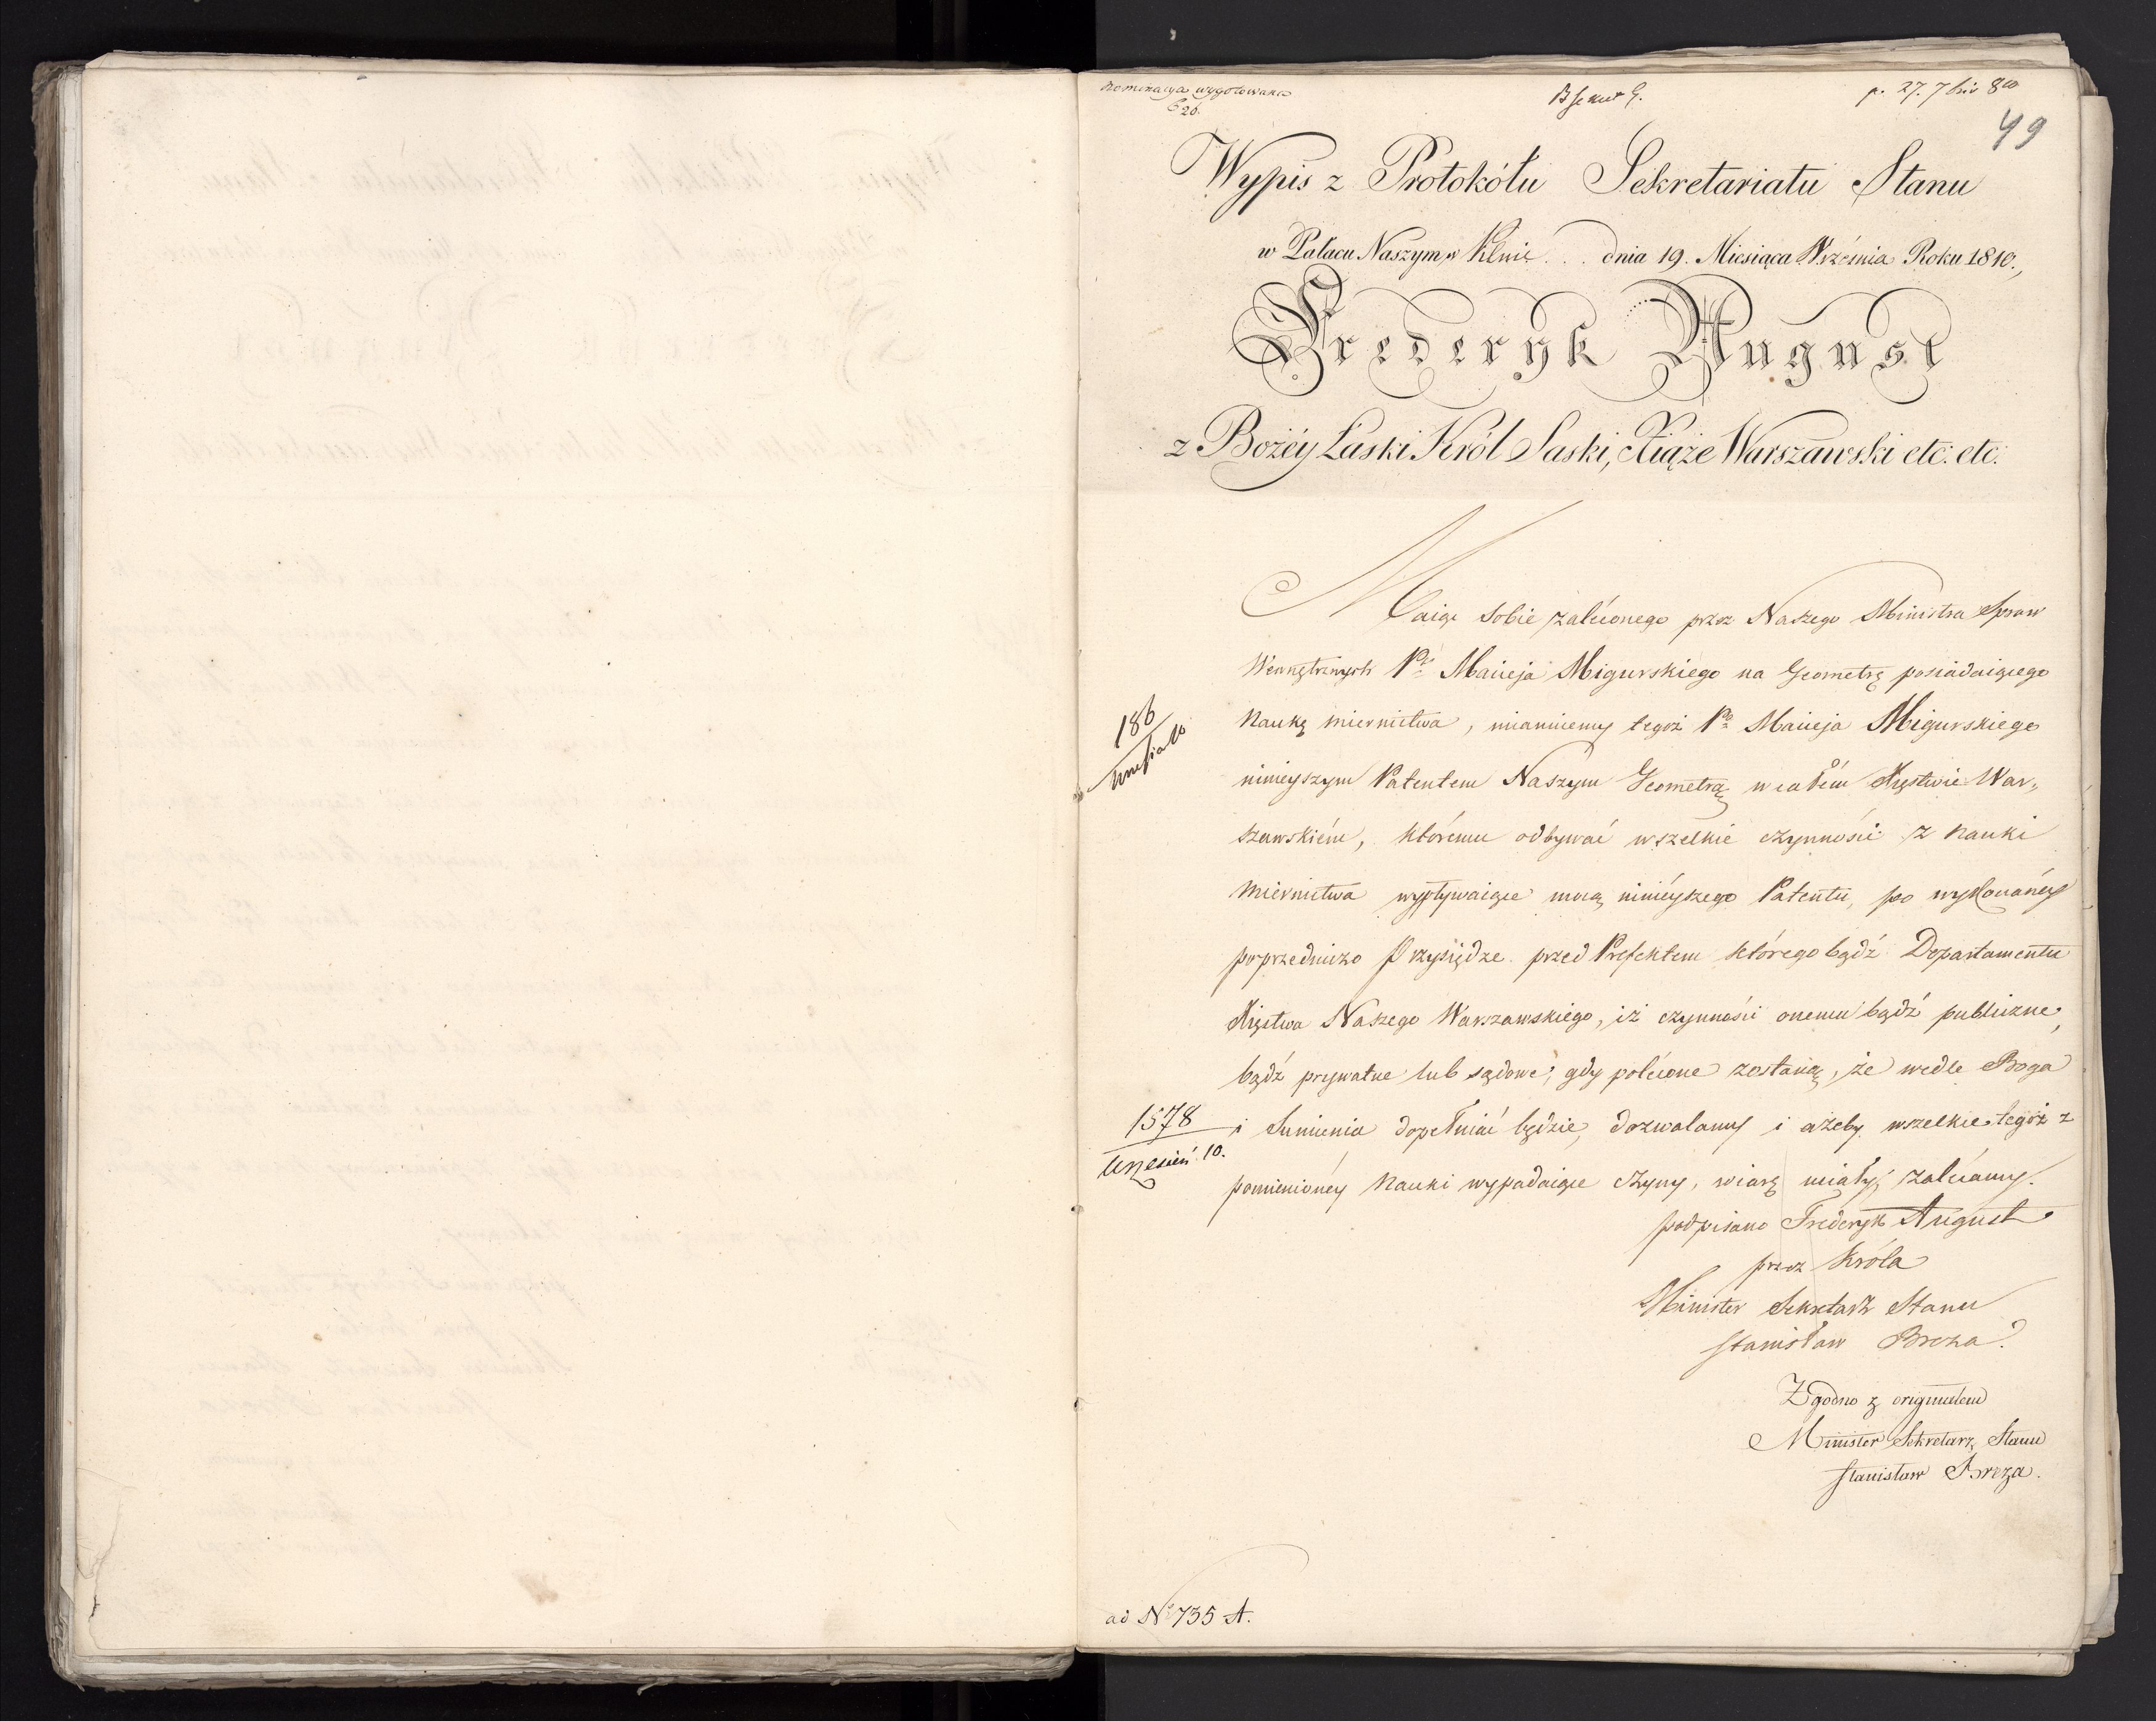 Nominacya wygotowana
E 26.
p. 27. 7bris 810
49
Wypis z Protokółu Sekretariatu Stanu
w Pałacu Naszym w Pilnic . . . dnia 19. Miesiąca Września Roku 1810.,
Frederyk August
z Bożéy Łaski Król Saski, Xiąże Warszawski etc: etc:
Maiąc sobie zaleconego przez Naszego Ministra Spraw
Wewnętrznych Pa Macieja Migurskiego na Geometrę posiadaiącego
Naukę miernictwa, mianuiemy tegoż Pa Macieja Migurskiego
ninieyszym Patentem Naszym Geometrą w całém Xięstwie War„
szawskiém, któremu odbywać wszelkie czynności z Nauki
Miernictwa wypływaiące mocą ninieyszego Patentu, po wykonanéy
poprzedniczo Przysiędze przed Prefektem którego bądź Departamentu
Xięstwa Naszego Warszawskiego, iż czynności onemu bądź publiczne,
bądź prywatne lub sądowe, gdy polécone zostaną, że wedle Boga
i Sumienia dopełniać będzie, dozwalamy i ażeby wszelkie tegoż z
pomienionéy Nauki wypadaiące czyny, wiarę miały, zalécamy.
186
1578
Wrzesień 10.
podpisano Frederyk August
przez Króla
Minister Sekretarz Stanu
Stanisław Breza.
Zgodno z originałem
Minister Sekretarz Stanu
Stanisław Breza.
ad No 735 A.